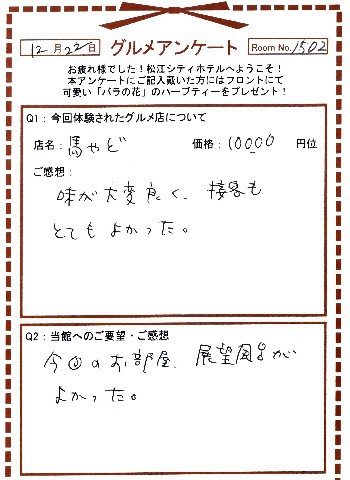 12月22日 グルメアンケート Room No. 1502
お疲れ様でした！松江シティホテルへようこそ！
本アンケートにご記入戴いた方にはフロントにて
可愛い「バラの花」のハーブティーをプレゼント！
Q1：今回体験されたグルメ店について
店名：馬やど 価格：10000 円位
ご感想：
味が大変良く、接客も
とてもよかった。
Q2：当館へのご要望・ご感想
今回のお部屋、展望風呂が
よかった。